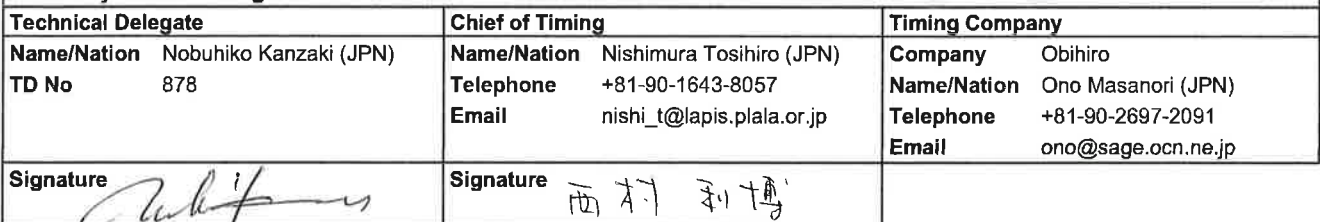 Technical Delegate Chief of Timing Timing Company
Name/Nation Nobuhiko Kanzaki (JPN) Name/Nation Nishimura Tosihiro (JPN) Company Obihiro
TD No 878 Telephone +81-90-1643-8057 Name/Nation Ono Masanori (JPN)
Email nishi_t@lapis.plala.or.jp Telephone +81-90-2697-2091
Email ono@sage.ocn.ne.jp
Signature Signature 西村 利博